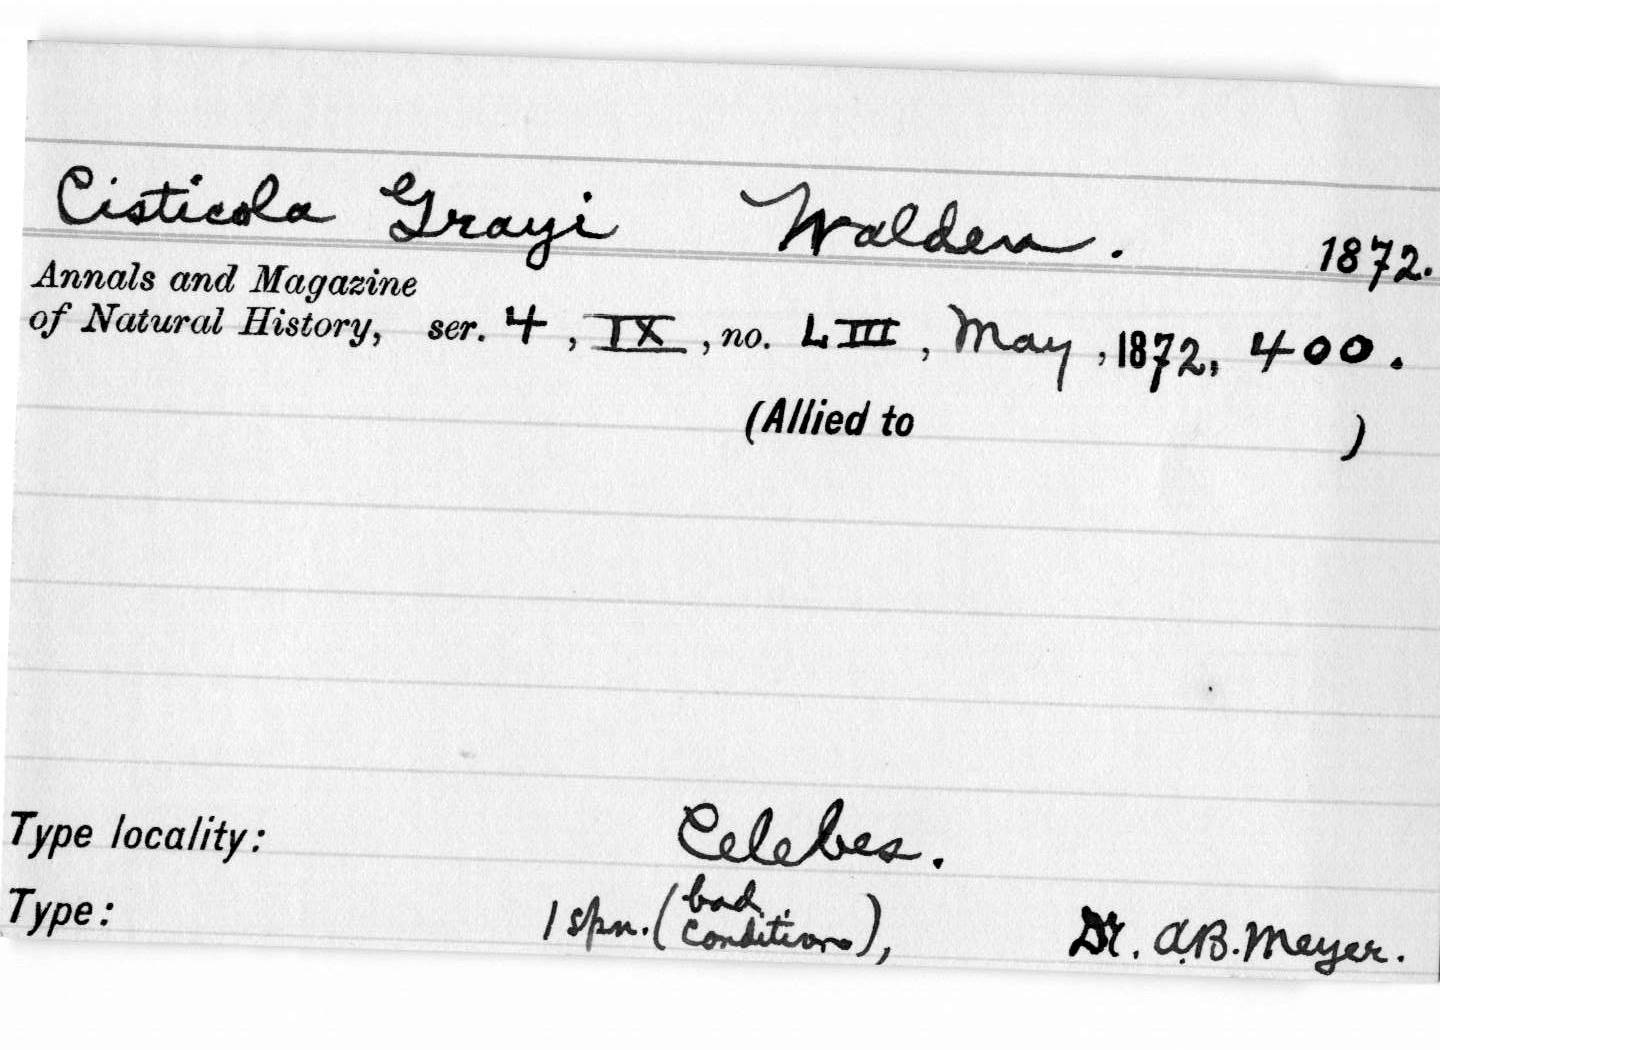 Cisticola Grayi Walden. 1872.
Annals and Magazine
of Natural History, ser. 4, IX, no. LIII, May, 1872, 400.
(Allied to )
Type locality: Celebes.
Type: 1 spn. (bad condition), Dr. A.B. Meyer.